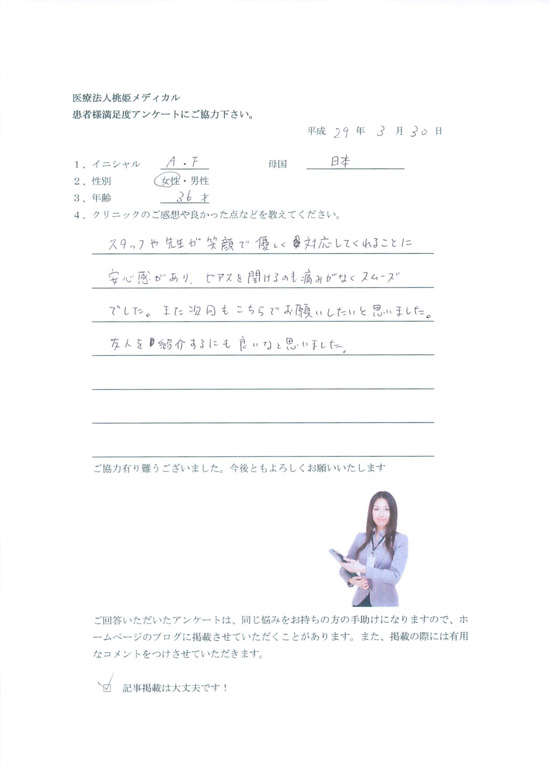 医療法人桃姫メディカル
患者様満足度アンケートにご協力下さい。
平成 29 年 3 月 30 日
1、イニシャル A・F 母国 日本
2、性別 女性・男性
3、年齢 36才
4、クリニックのご感想や良かった点などを教えてください。
スタッフや先生が笑顔で優しく対応してくれることに
安心感があり、ピアスを開けるのも痛みがなくスムーズ
でした。また次回もこちらでお願いしたいと思いました。
友人を紹介するにも良いなと思いました。
ご協力有り難うございました。今後ともよろしくお願いいたします
ご回答いただいたアンケートは、同じ悩みをお持ちの方の手助けになりますので、ホ
ームページのブログに掲載させていただくことがあります。また、掲載の際には有用
なコメントをつけさせていただきます。
☑ 記事掲載は大丈夫です！